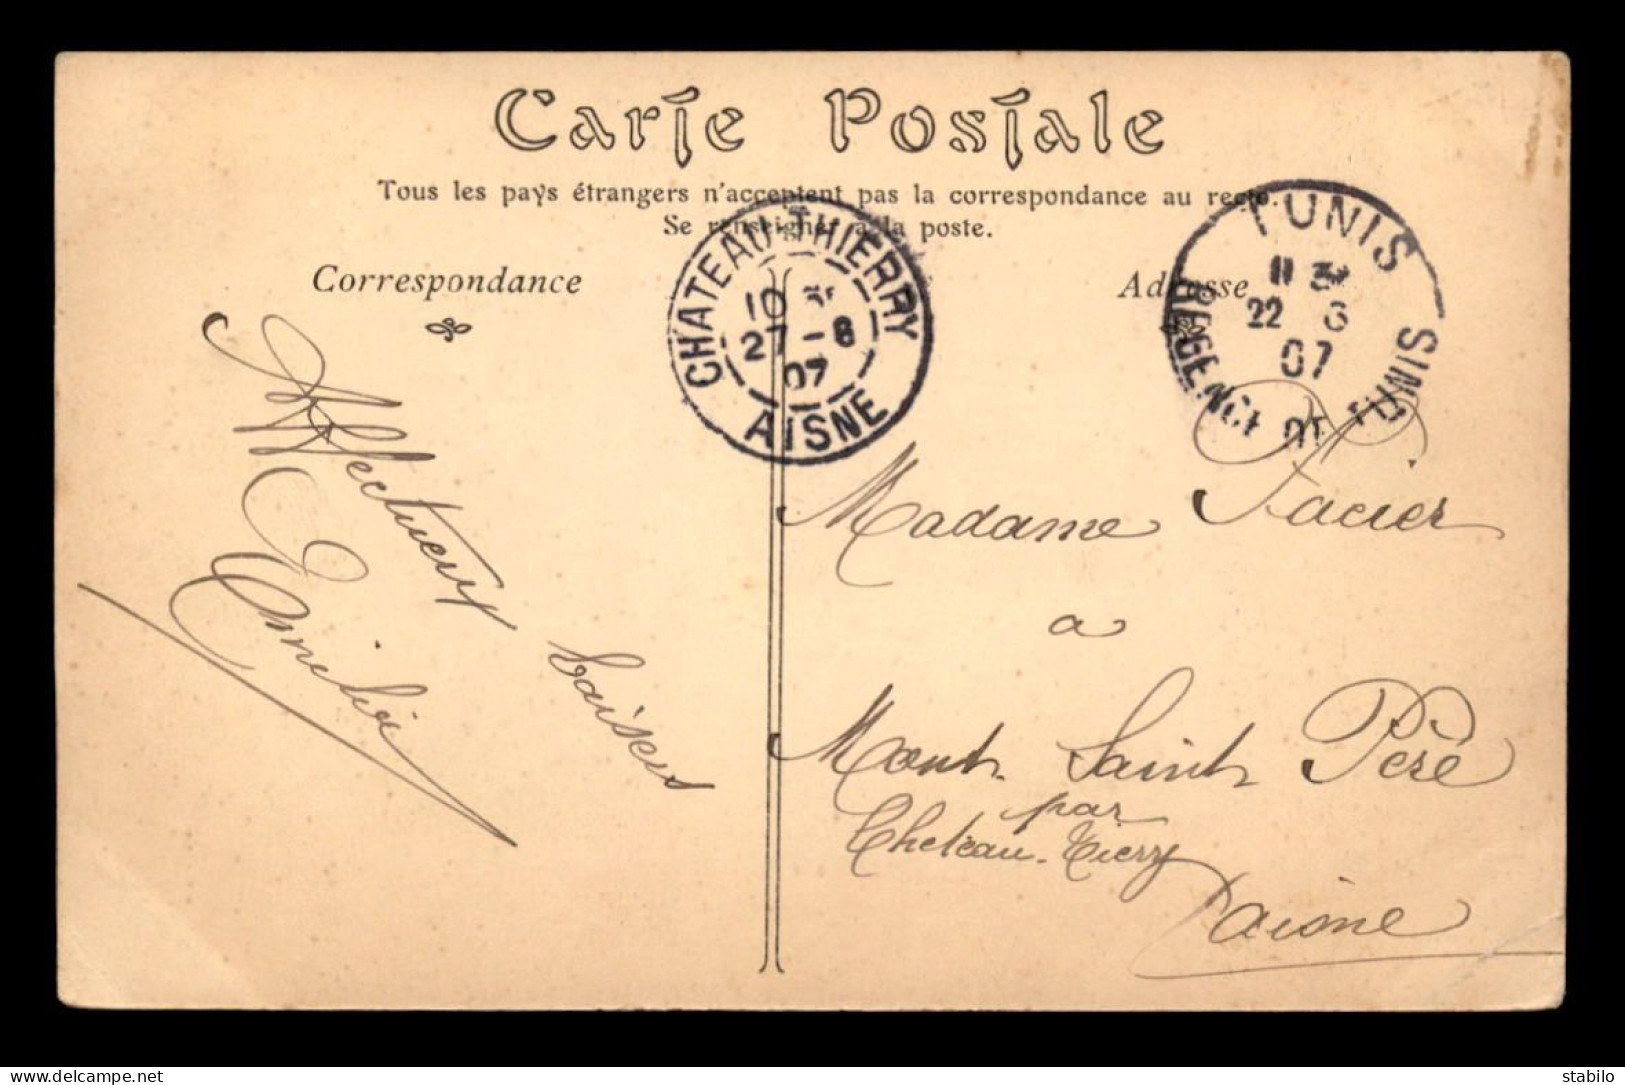 Carte Postale
Tous les pays étrangers n'acceptent pas la correspondance au recto.
Se renseigner à la poste.
Correspondance
Adresse
CHATEAU-THIERRY
10
27 - 8
07
AISNE
TUNIS
11
22 8
07
REGENCE DE TUNIS
Affectueux
baisers
Emilie
Madame Facier
a
Mont Saint Père
par
Cheteau-Tierry
aisne
delcampe.net
stabilo